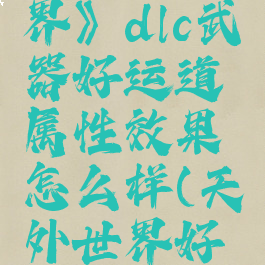 界》dlc武
器好运道
属性效果
怎么样(天
外世界好